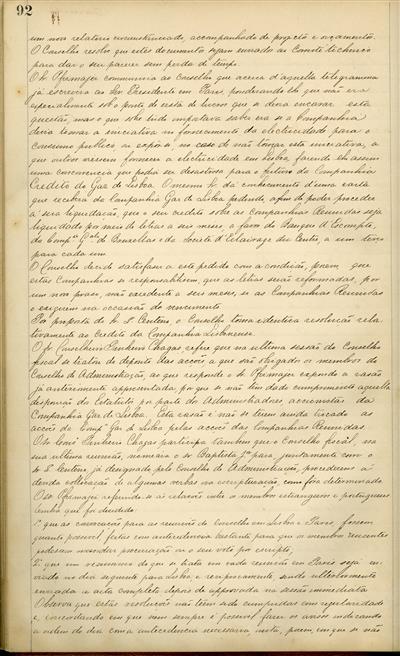 92
um novo relatorio circumstanciado, acompanhado de projecto e orçamento.
O Conselho resolve que estes documentos sejam enviados ao Comité technico
para dar o seu parecer sem perda de tempo.
O Sr. communica ao Conselho que acerca d'aquelle telegramma
já escreveu ao Sr. Presidente em Paris ponderando-lhe que não era
especialmente sob o ponto de vista de lucros que se devia encarar esta
questão, mas o que sobretudo importava saber era se a Companhia
devia tomar a iniciativa no fornecimento da electricidade para o
consumo publico ou expôr-se, no caso de não tomar esta iniciativa, a
que outros viessem fornecer a electricidade em Lisboa, fazendo-lhe assim
uma concorrencia que podia ser desastrosa para o futuro da Companhia
Credito do Gaz de Lisboa. O mesmo Sr. dá conhecimento d'uma carta
que recebeu da Companhia Gaz de Lisboa pedindo, a fim de poder proceder
á sua liquidação, que o seu credito sobre as Companhias Reunidas seja
liquidado por meio de letras a seis mezes, a favor da Banque d'Escompte,
da Comp.ª G.al de Bruxellas e da Société d'Eclairage du Centre, a um terço
para cada um.
O Conselho decide satisfazer a este pedido com a condição, porem, que
estas Companhias se responsabilisem, que as letras serão reformadas, por
um novo praso, não excedente a seis mezes, se as Companhias Reunidas
o exigirem na occasião do vencimento.
Por proposta do Sr. S. Centeno, o Conselho toma identica resolução rela-
tivamente ao credito da Companhia Lisbonense.
O Sr. Conselheiro Pinheiro Chagas refere que na ultima sessão do Conselho
fiscal se tratou do deposito das acções, a que são obrigados os membros do
Conselho de Administração, ao que responde o Sr. expondo a razão
já anteriormente apresentada, por que se não tem dado cumprimento áquella
disposição do Estatuto por parte dos Administradores accionistas da
Companhia Gaz de Lisboa. Esta razão é não se terem ainda trocado as
acções da Comp.ª Gaz de Lisboa pelas acções das Companhias Reunidas.
O Sr. Cons.º Pinheiro Chagas participa tambem que o Conselho fiscal, na
sua ultima reunião, nomeára o Sr. Baptista J.or para, juntamente com o
Sr. S. Centeno, já designado pelo Conselho de Administração, procederem á
devida collocação de algumas verbas na escripturação, como fôra determinado.
O Sr. referindo-se ás relações entre os membros estrangeiros e portuguezes
lembra que foi decidido:
1.º que as convocações para as reuniões do Conselho em Lisboa e Paris, fossem
quanto possivel feitas com antecedencia bastante para que os membros ausentes
podessem mandar procuração ou o seu voto por escripto;
2.º que um resumo do que se trata em cada reunião em Paris seja en-
viado no dia seguinte para Lisboa, e reciprocamente, sendo ulteriormente
enviada a acta completa depois de approvada na sessão immediata.
Observa que estas resoluções não têem sido cumpridas com regularidade
e, concordando em que nem sempre é possivel fazer os avisos indicando
a ordem do dia com a antecedencia necessaria, nota, porem, em que se não